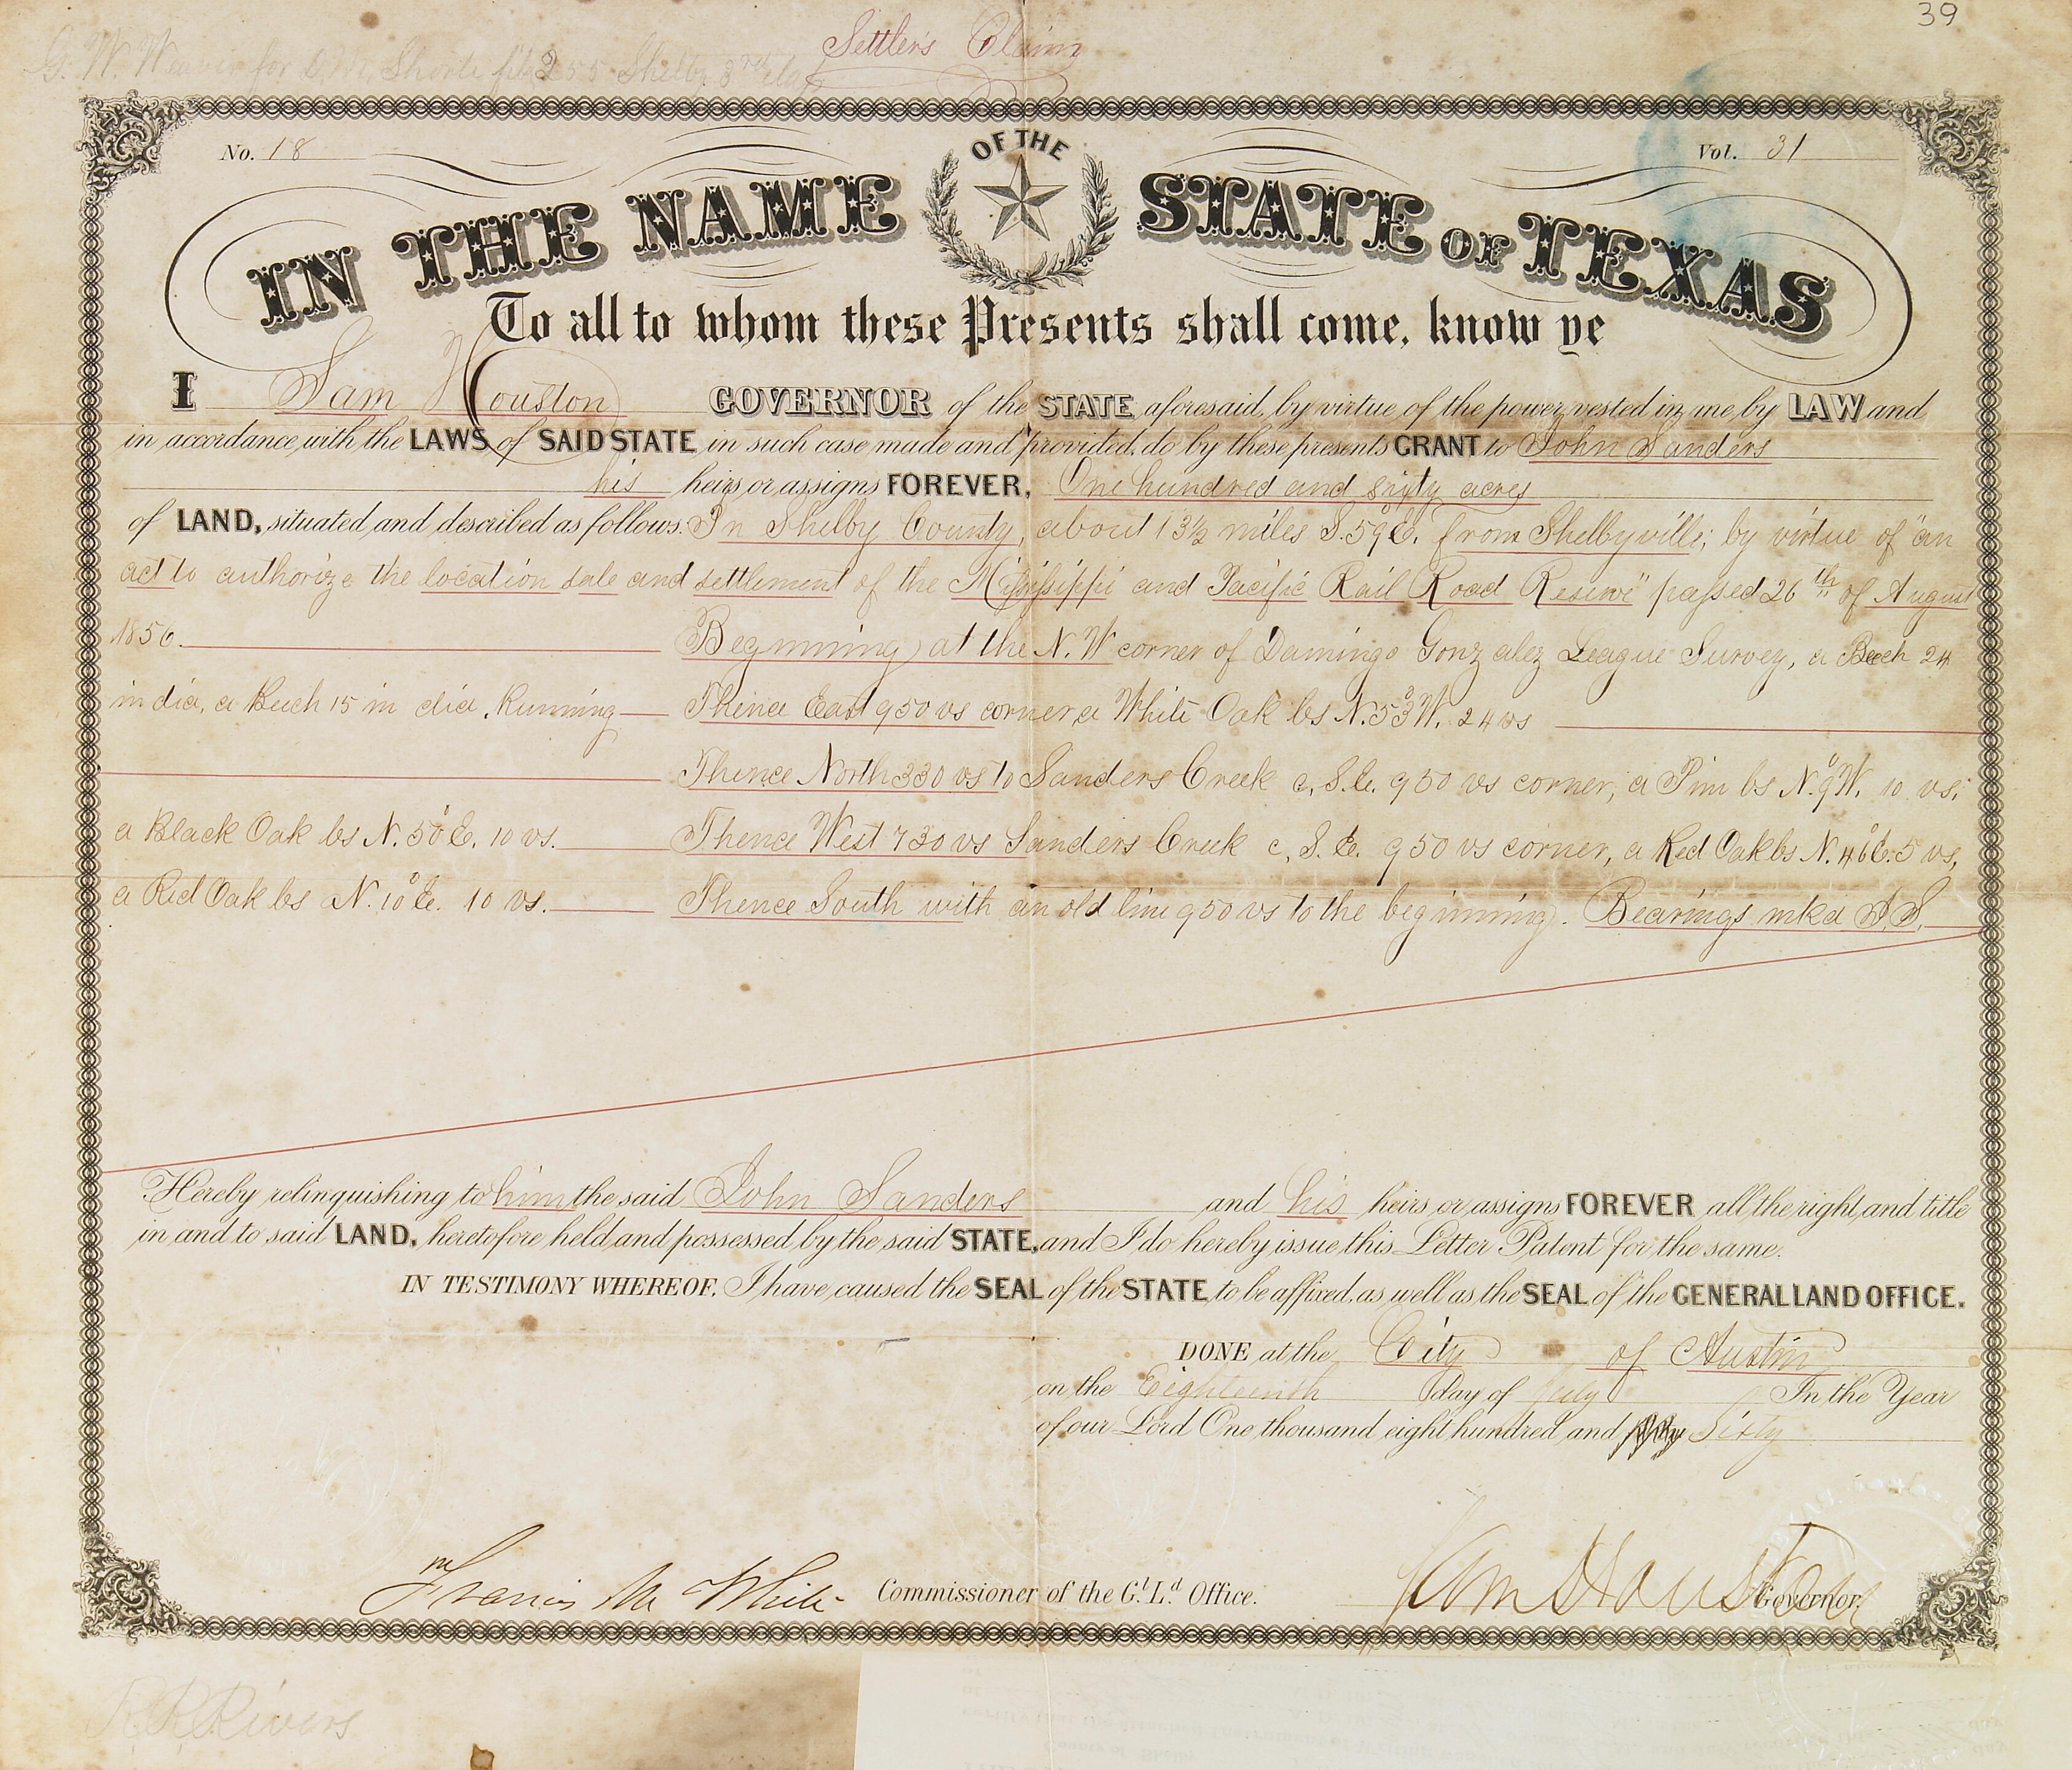 39
Settler's Claim
G. W. Weaver for
Shelby 3rd
No. 18
Vol. 31
OF THE
IN THE NAME STATE OF TEXAS
To all to whom these Presents shall come, know ye
I Sam Houston GOVERNOR of the STATE aforesaid, by virtue of the power vested in me by LAW and
in accordance with the LAWS of SAID STATE in such case made and provided, do by these presents GRANT to John Sanders
his heirs or assigns FOREVER, One hundred and sixty acres
of LAND, situated and described as follows: In Shelby County, about 13½ miles S. 59° E. from Shelbyville; by virtue of "an
act to authorize the location sale and settlement of the Mississippi and Pacific Rail Road Reserve" passed 26th of August
1856. Beginning at the N. W corner of Damingo Gonzalez League Survey, a Beech 24
in dia, a Beech 15 in dia, Running Thence East 950 vs corner a White Oak bs N. 53° W. 24 vs
Thence North 330 vs to Sanders Creek c, S. E. 950 vs corner, a Pine bs N. 9° W. 10 vs;
a Black Oak bs N. 50° E. 10 vs. Thence West 730 vs Sanders Creek c, S. E. 950 vs corner, a Red Oak bs N. 46° E. 5 vs,
a Red Oak bs N. 10° E. 10 vs. Thence South with an old line 950 vs to the beginning. Bearings mkd J.S.
Hereby relinquishing to him the said John Sanders and his heirs or assigns FOREVER all the right and title
in and to said LAND, heretofore held and possessed by the said STATE, and I do hereby issue this Letter Patent for the same.
IN TESTIMONY WHEREOF, I have caused the SEAL of the STATE to be affixed, as well as the SEAL of the GENERAL LAND OFFICE.
DONE at the City of Austin
on the Eighteenth day of July In the Year
of our Lord One thousand eight hundred and fifty Sixty
Francis M White Commissioner of the G.t L.d Office.
Sam Houston Governor
R R Rivers